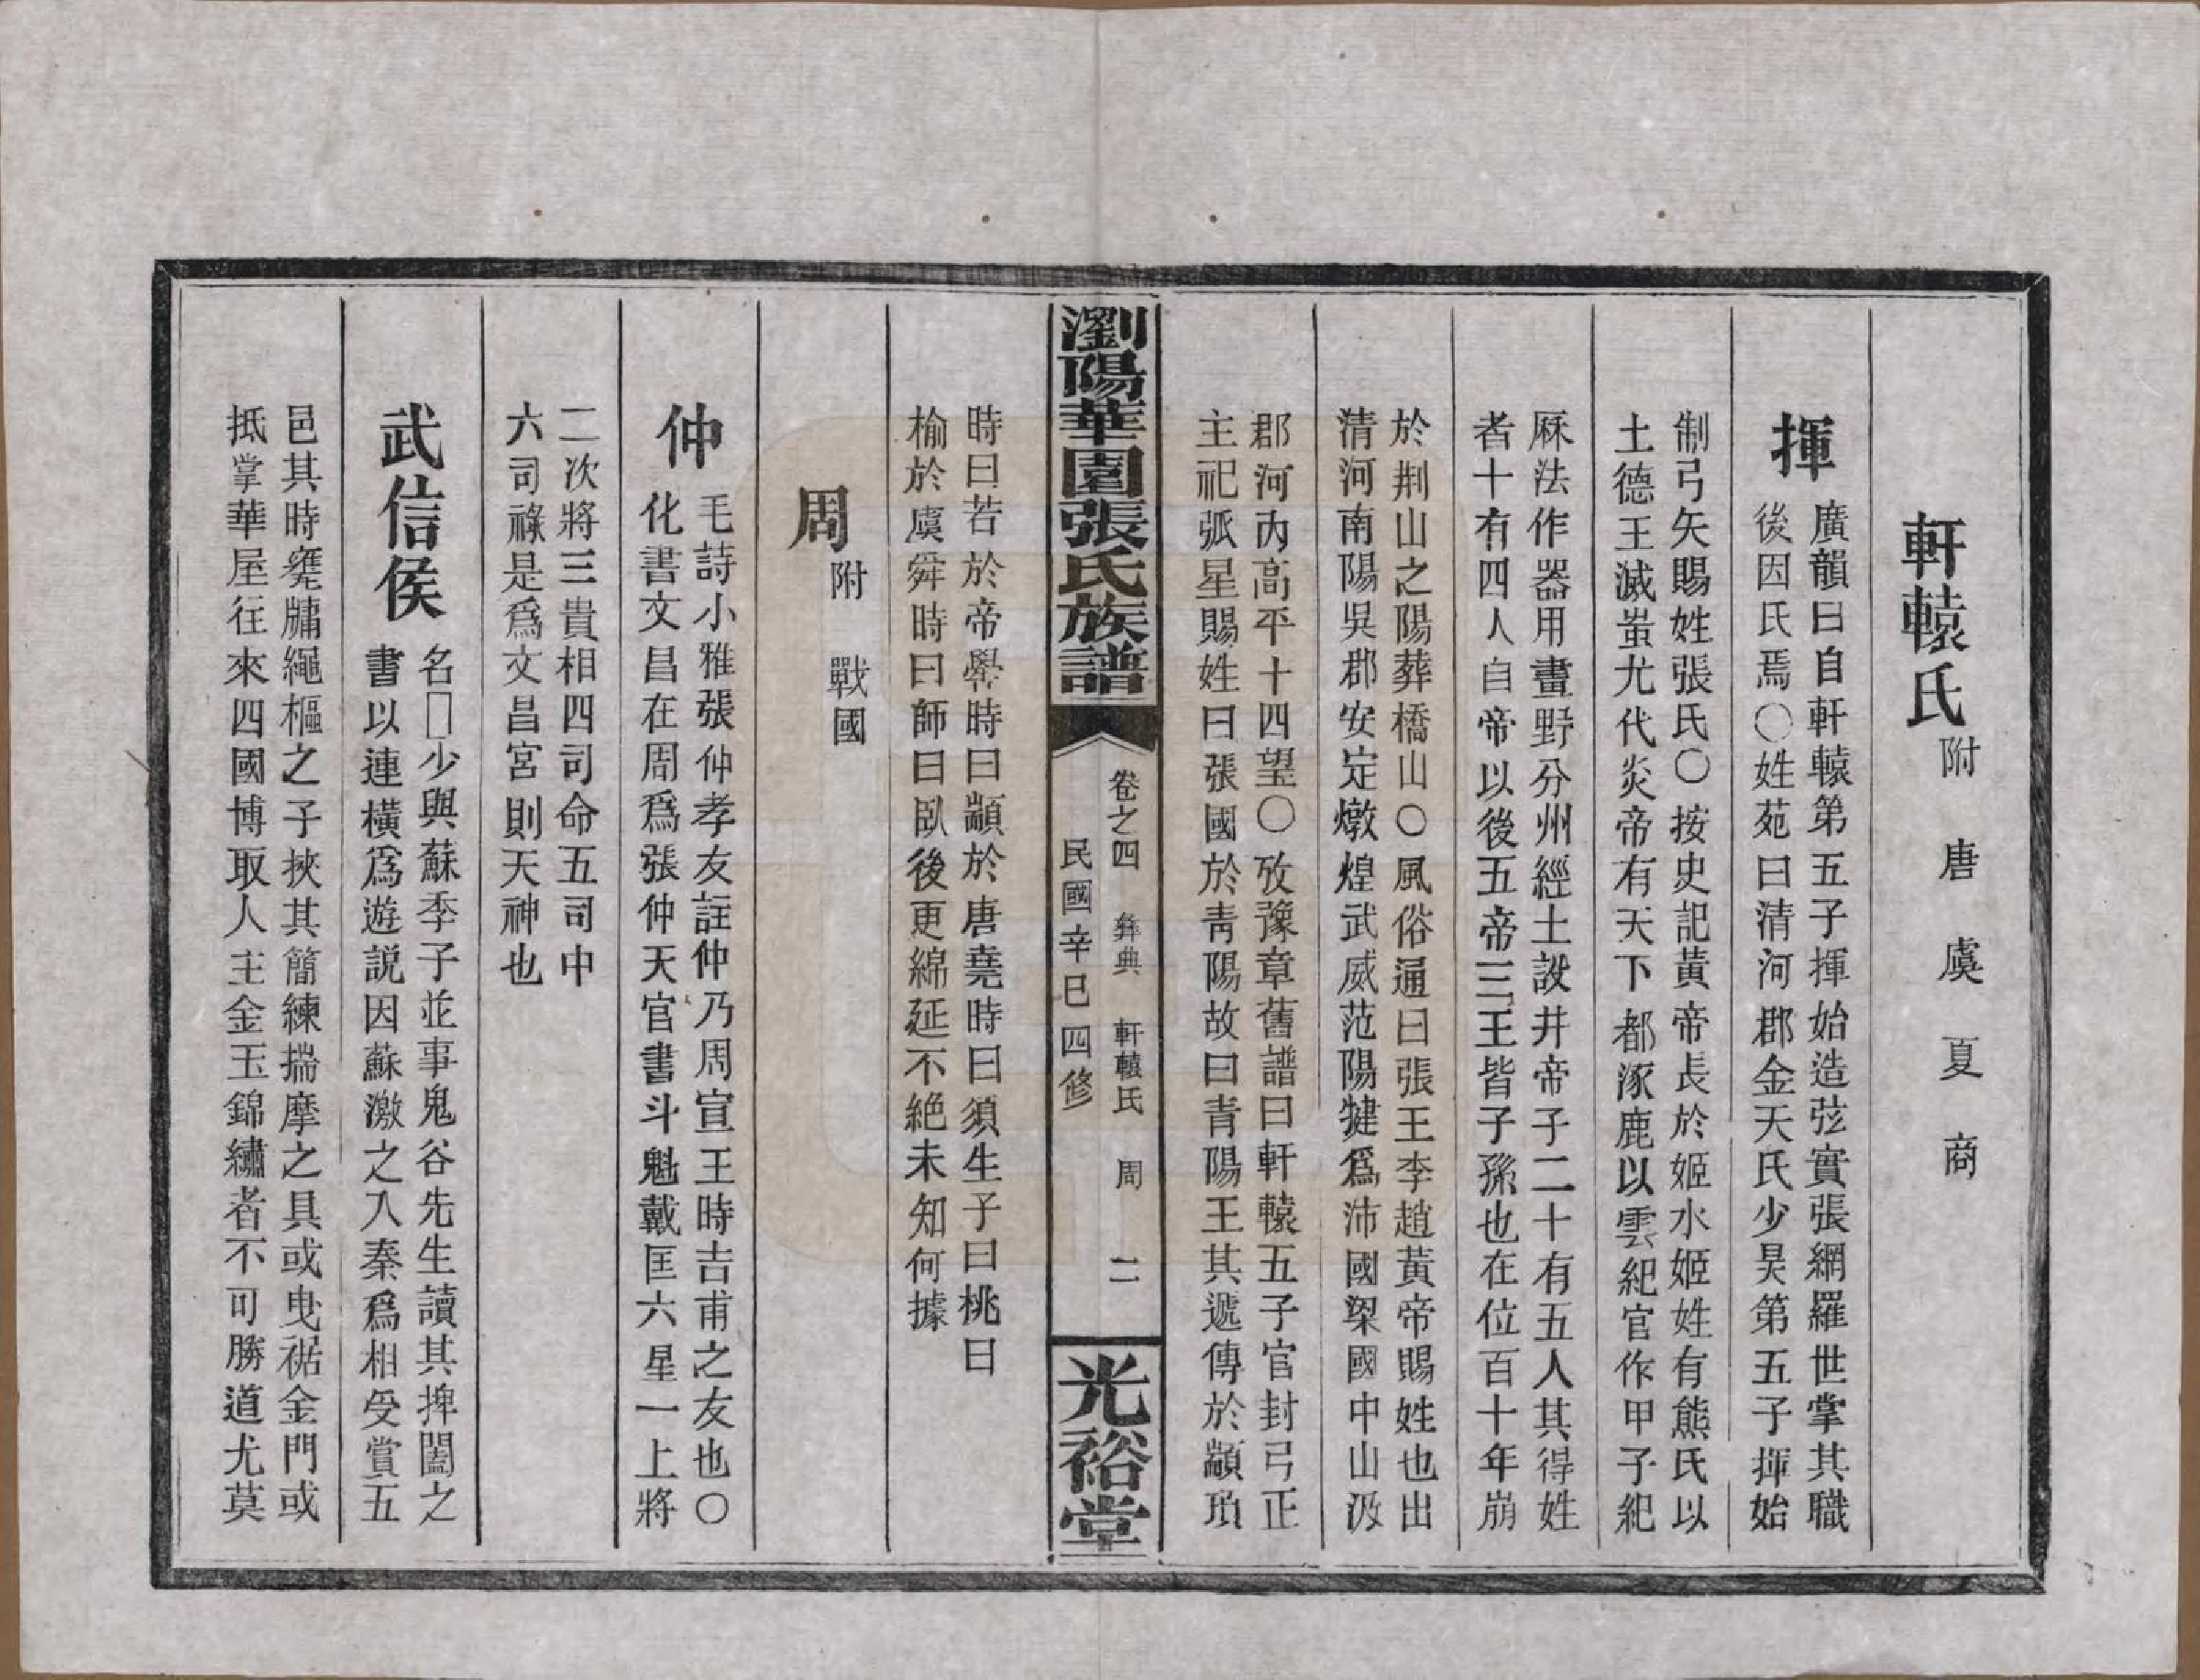 軒轅氏附　唐　虞　夏　商
揮
廣韻曰自軒轅第五子揮始造弦實張網羅世掌其職
後因氏焉〇姓苑曰清河郡金天氏少昊第五子揮始
制弓矢賜姓張氏〇按史記黃帝長於姬水姬姓有熊氏以
土德王滅蚩尤代炎帝有天下都涿鹿以雲紀官作甲子紀
厤法作器用畫野分州經土設井帝子二十有五人其得姓
者十有四人自帝以後五帝三王皆子孫也在位百十年崩
於荆山之陽葬橋山〇風俗通曰張王李趙黃帝賜姓也出
清河南陽吳郡安定燉煌武威范陽犍爲沛國梁國中山汲
郡河內高平十四望〇攷豫章舊譜曰軒轅五子官封弓正
主祀弧星賜姓曰張國於靑陽故曰青陽王其遞傳於顓頊
瀏陽華園張氏族譜
卷之四　彝典　軒轅氏　周　二
民國辛巳四修
光裕堂
時曰若於帝嚳時曰顓於唐堯時曰須生子曰桃曰
榆於虞舜時曰師曰臥後更綿延不絕未知何據
周附　戰國
仲
毛詩小雅張仲孝友註仲乃周宣王時吉甫之友也〇
化書文昌在周爲張仲天官書斗魁戴匡六星一上將
二次將三貴相四司命五司中
六司祿是爲文昌宮則天神也
武信侯
名□少與蘇季子並事鬼谷先生讀其捭闔之
書以連橫爲遊説因蘇激之入秦爲相受賞五
邑其時甕牖繩樞之子挾其簡練揣摩之具或曳裾金門或
抵掌華屋往來四國博取人主金玉錦繡者不可勝道尤莫